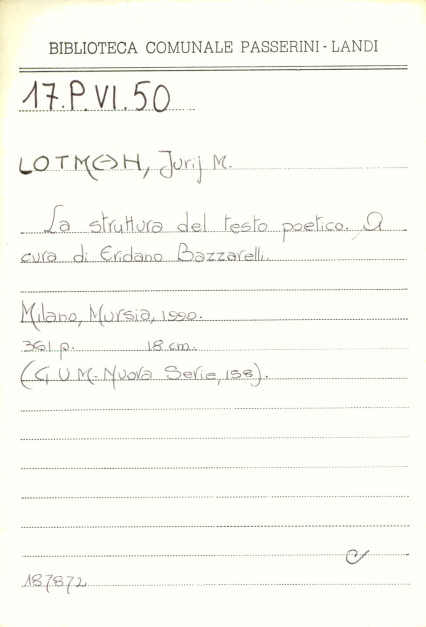 BIBLIOTECA COMUNALE PASSERINI - LANDI
17.P.VI.50
LOTMAN, Jurij M.
La struttura del testo poetico. A
cura di Eridano Bazzarelli.
Milano, Mursia, 1990.
361 p. 18 cm.
(G U M - Nuova Serie, 158).
187872